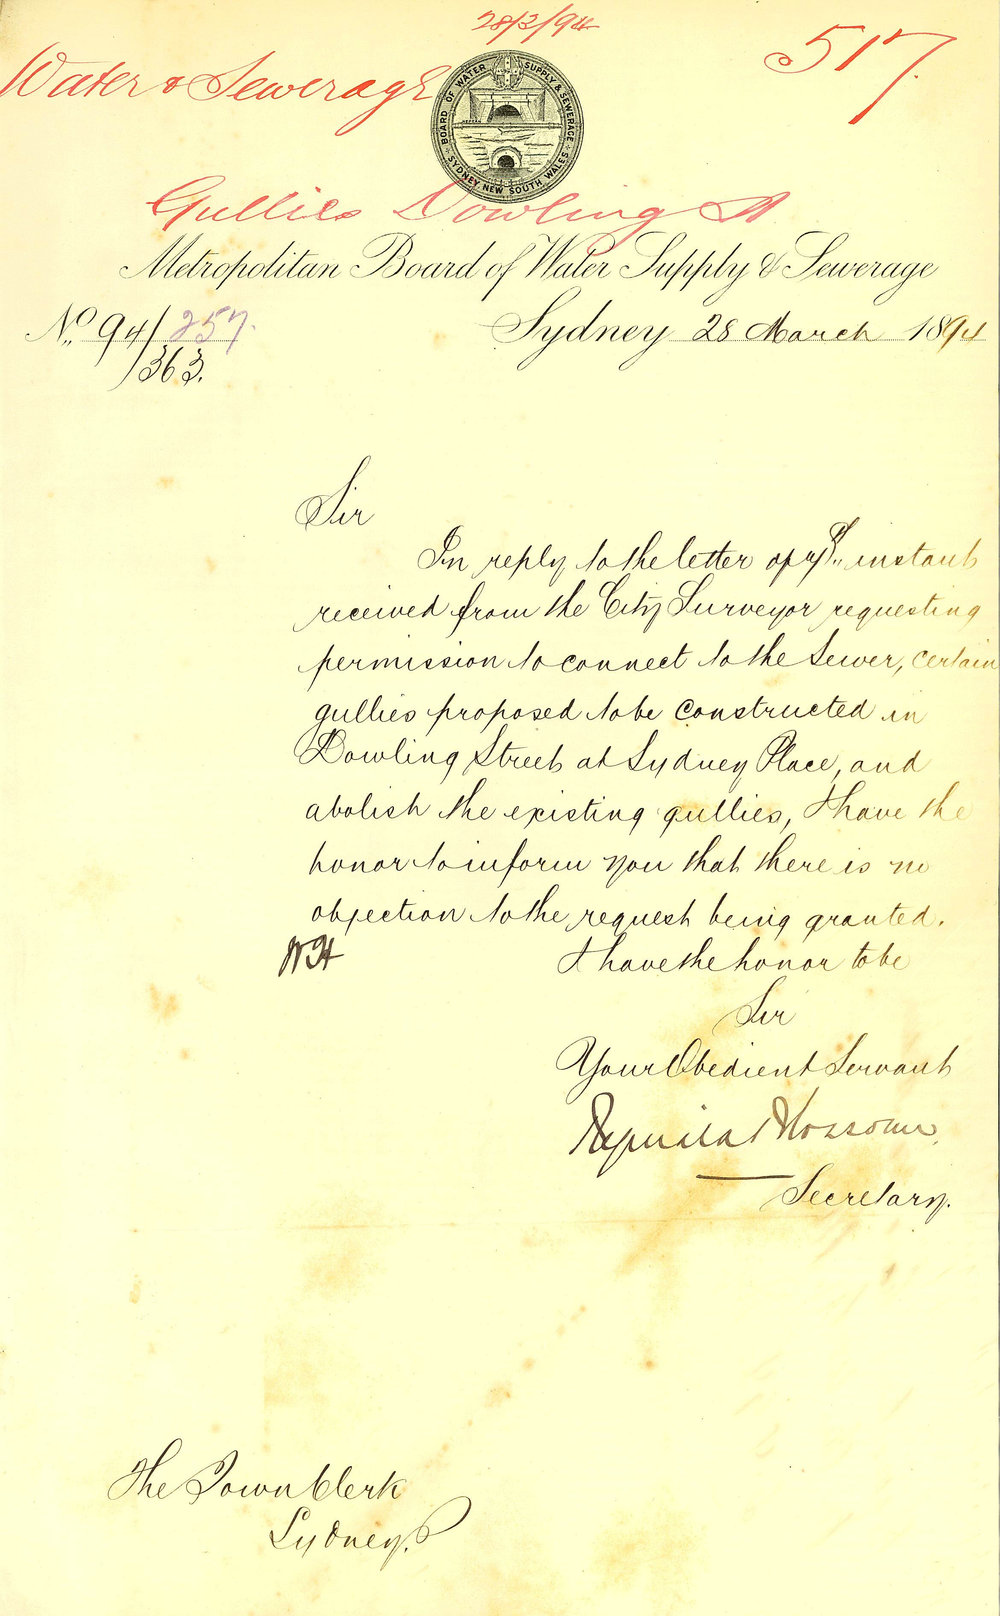 28/3/94
Water & Sewerage
517.
BOARD OF WATER SUPPLY & SEWERAGE
SYDNEY NEW SOUTH WALES
Gullies Dowling St
Metropolitan Board of Water Supply & Sewerage
No. 94/257.
/363.
Sydney 28 March 1894
Sir
In reply to the letter of instant
received from the City Surveyor requesting
permission to connect to the Sewer, certain
gullies proposed to be constructed in
Dowling Street at Sydney Place, and
abolish the existing gullies, I have the
honor to inform you that there is no
objection to the request being granted.
I have the honor to be
Sir
Your Obedient Servant
Secretary.
The Town Clerk
Sydney.